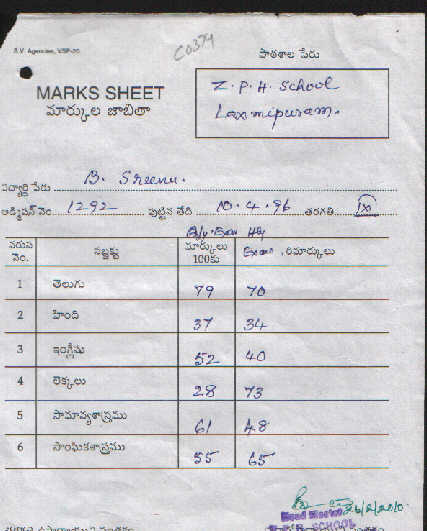 S.V. Agencies, VSP-20.
C0379
పాఠశాల పేరు
MARKS SHEET
మార్కుల జాబితా
Z. P. H. School
Laxmipuram.
విద్యార్థి పేరు B. Sreenu.
అడ్మిషన్ నెం. 1292 పుట్టిన తేది 10.4.96 తరగతి IX
వరుస నెం. సబ్జక్టు మార్కులు 100కు , రిమార్కులు
1 తెలుగు 79 70
2 హింది 37 34
3 ఇంగ్లీషు 52 40
4 లెక్కలు 28 73
5 సామాన్యశాస్త్రము 61 48
6 సాంఘికశాస్త్రము 55 65
26/2/2010
Head Master
SCHOOL